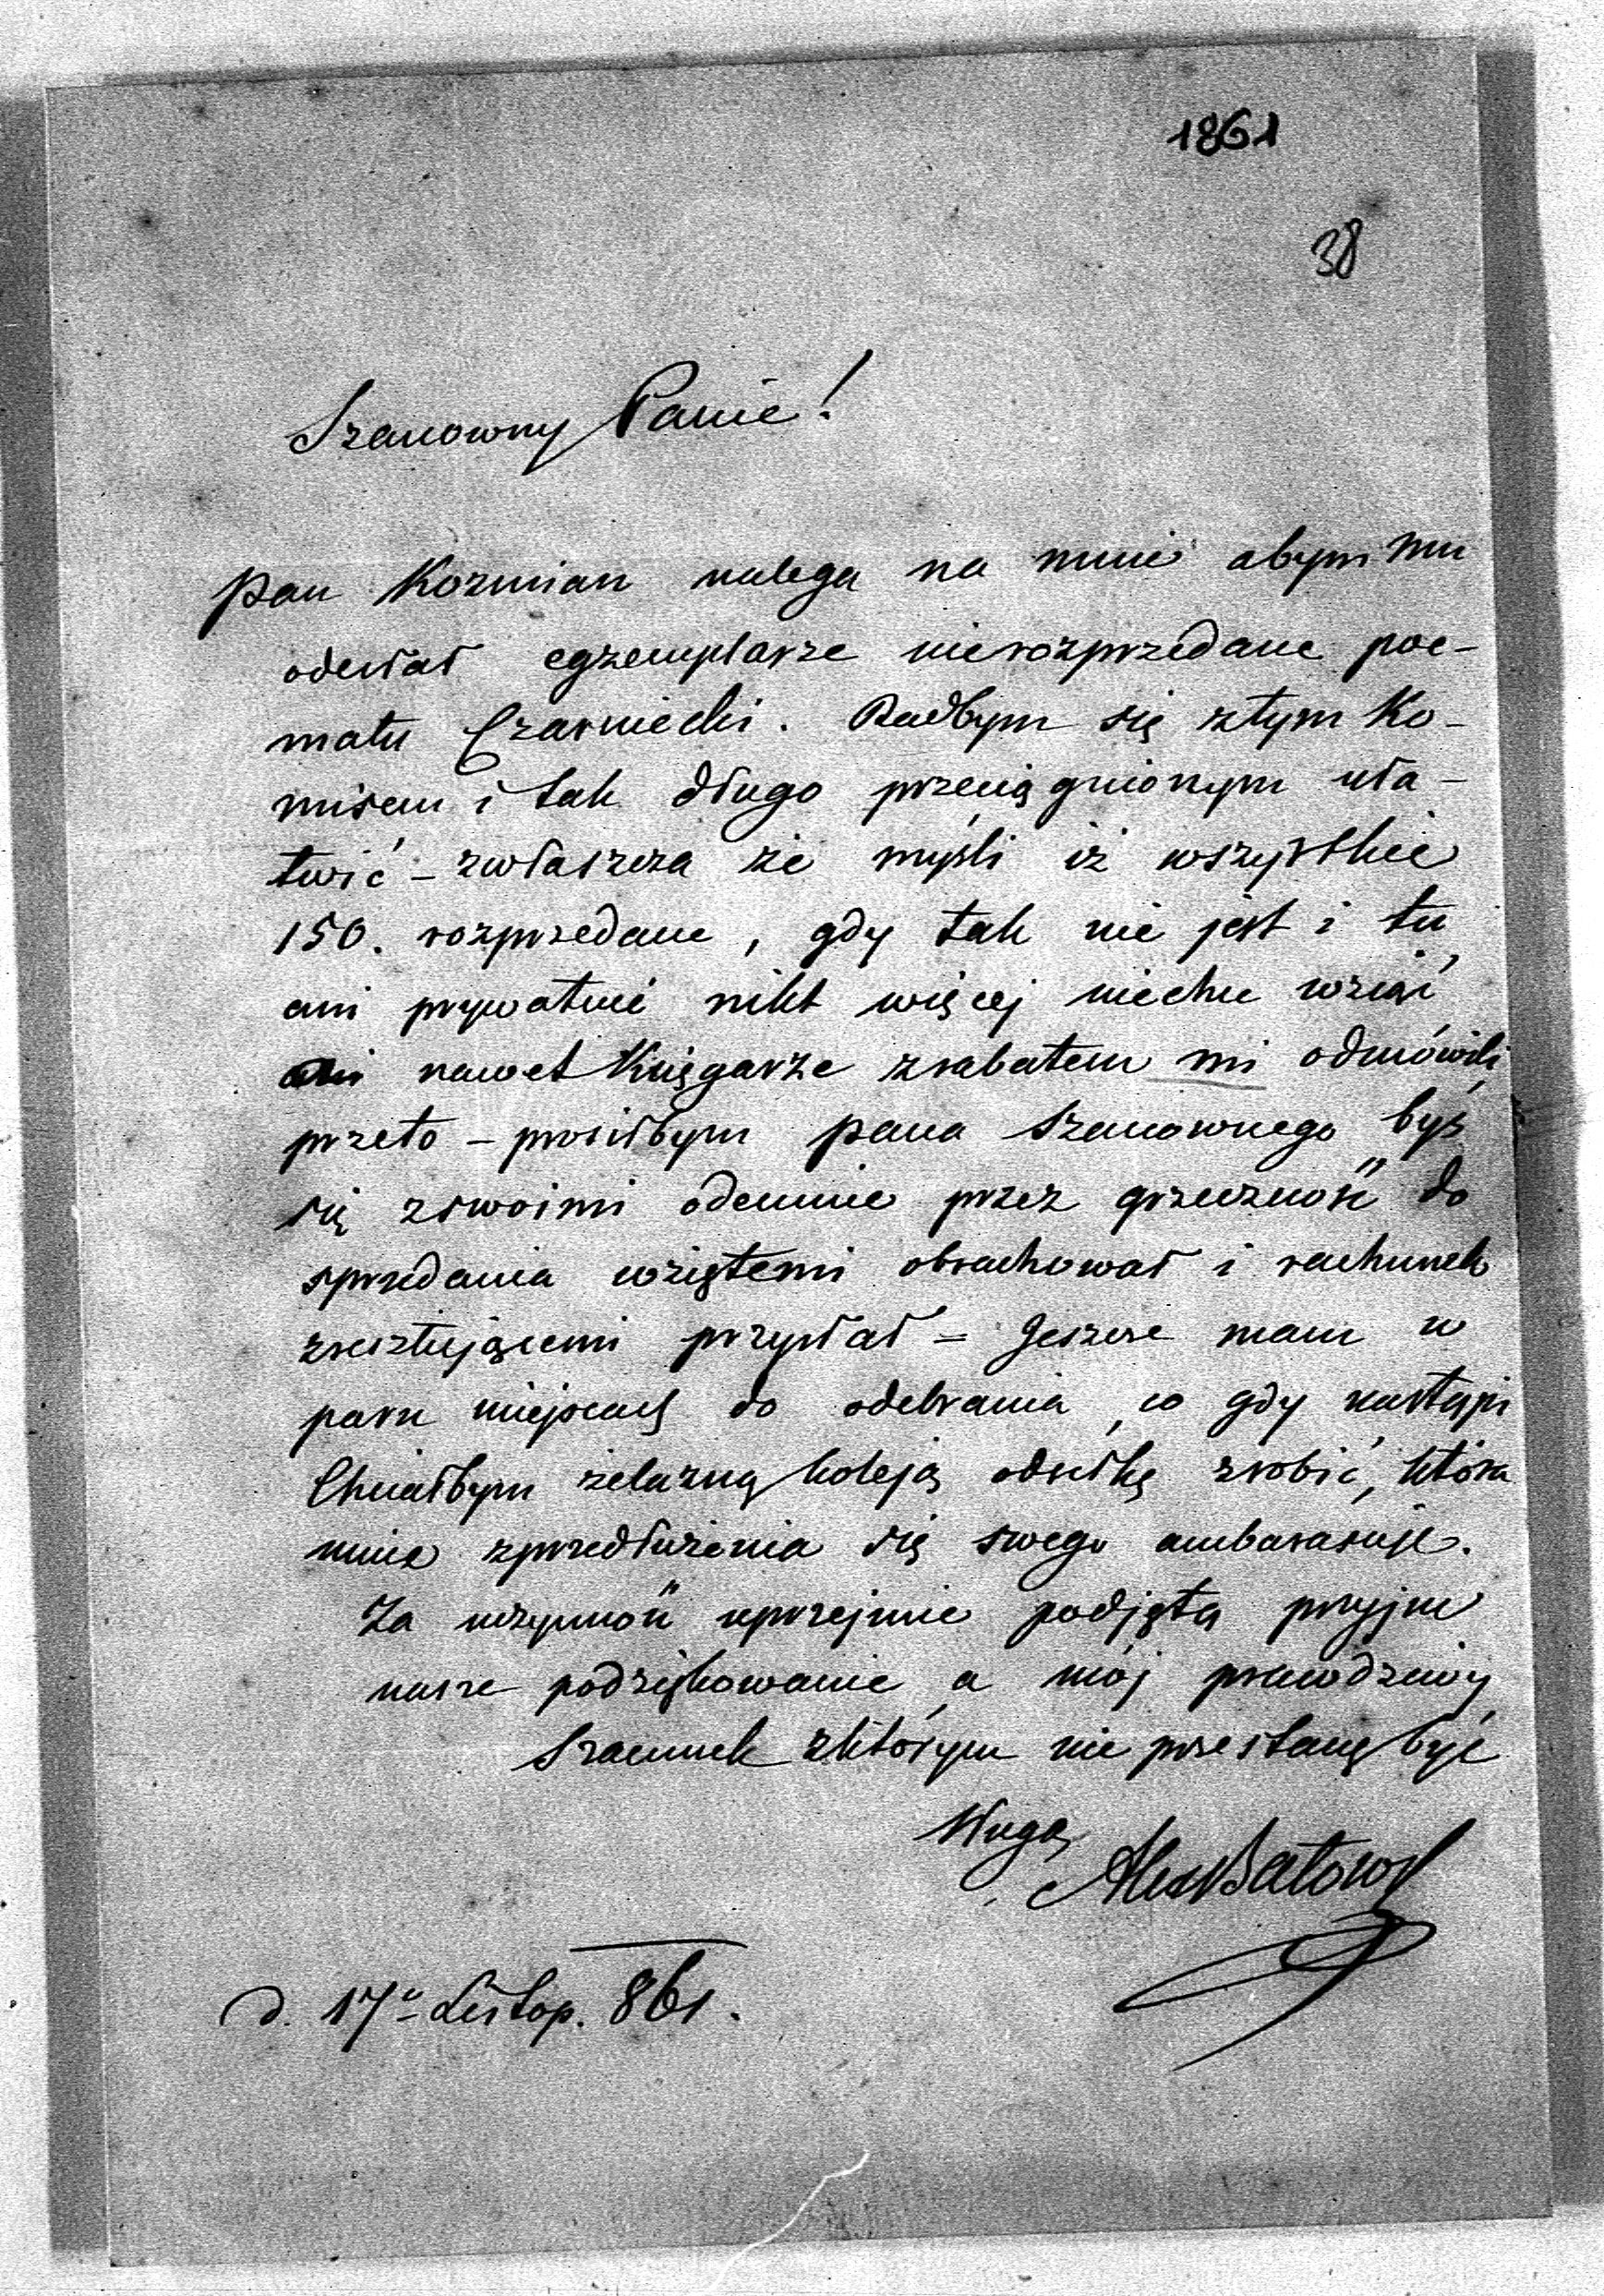 1861
38
Szanowny Panie!
Pan Kozmian nalega na mnie abym mu
odesłał egzemplarze nierozprzedane poe-
matu Czarniecki. Radbym się ztym Ko-
misem i tak długo przeciągnionym uła-
twić – zwłaszcza że myśli iż wszystkie
150. rozprzedane, gdy tak nie jest i tu
ani prywatnie nikt więcej niechce wziąć
ani nawet Księgarze zrabatem mi odmówili
przeto – prosiłbym pana Szanownego byś
się zswoimi odemnie przez grzeczność do
sprzedania wziętemi obrachował i rachunek
zresztującemi przysłał = Jeszcze mam w
paru miejscach do odebrania, co gdy nastąpi
Chciałbym żelazną koleją odsełkę zrobić, która
mnie zprzedłużenia się swego ambarasuje.
Za uczynność uprzejmie podjętą przyjm
nasze podziękowanie a mój prawdziwy
Szacunek zktórym nie przestanę być
Sługą
Alex Batows
d. 17º Listop. 861.